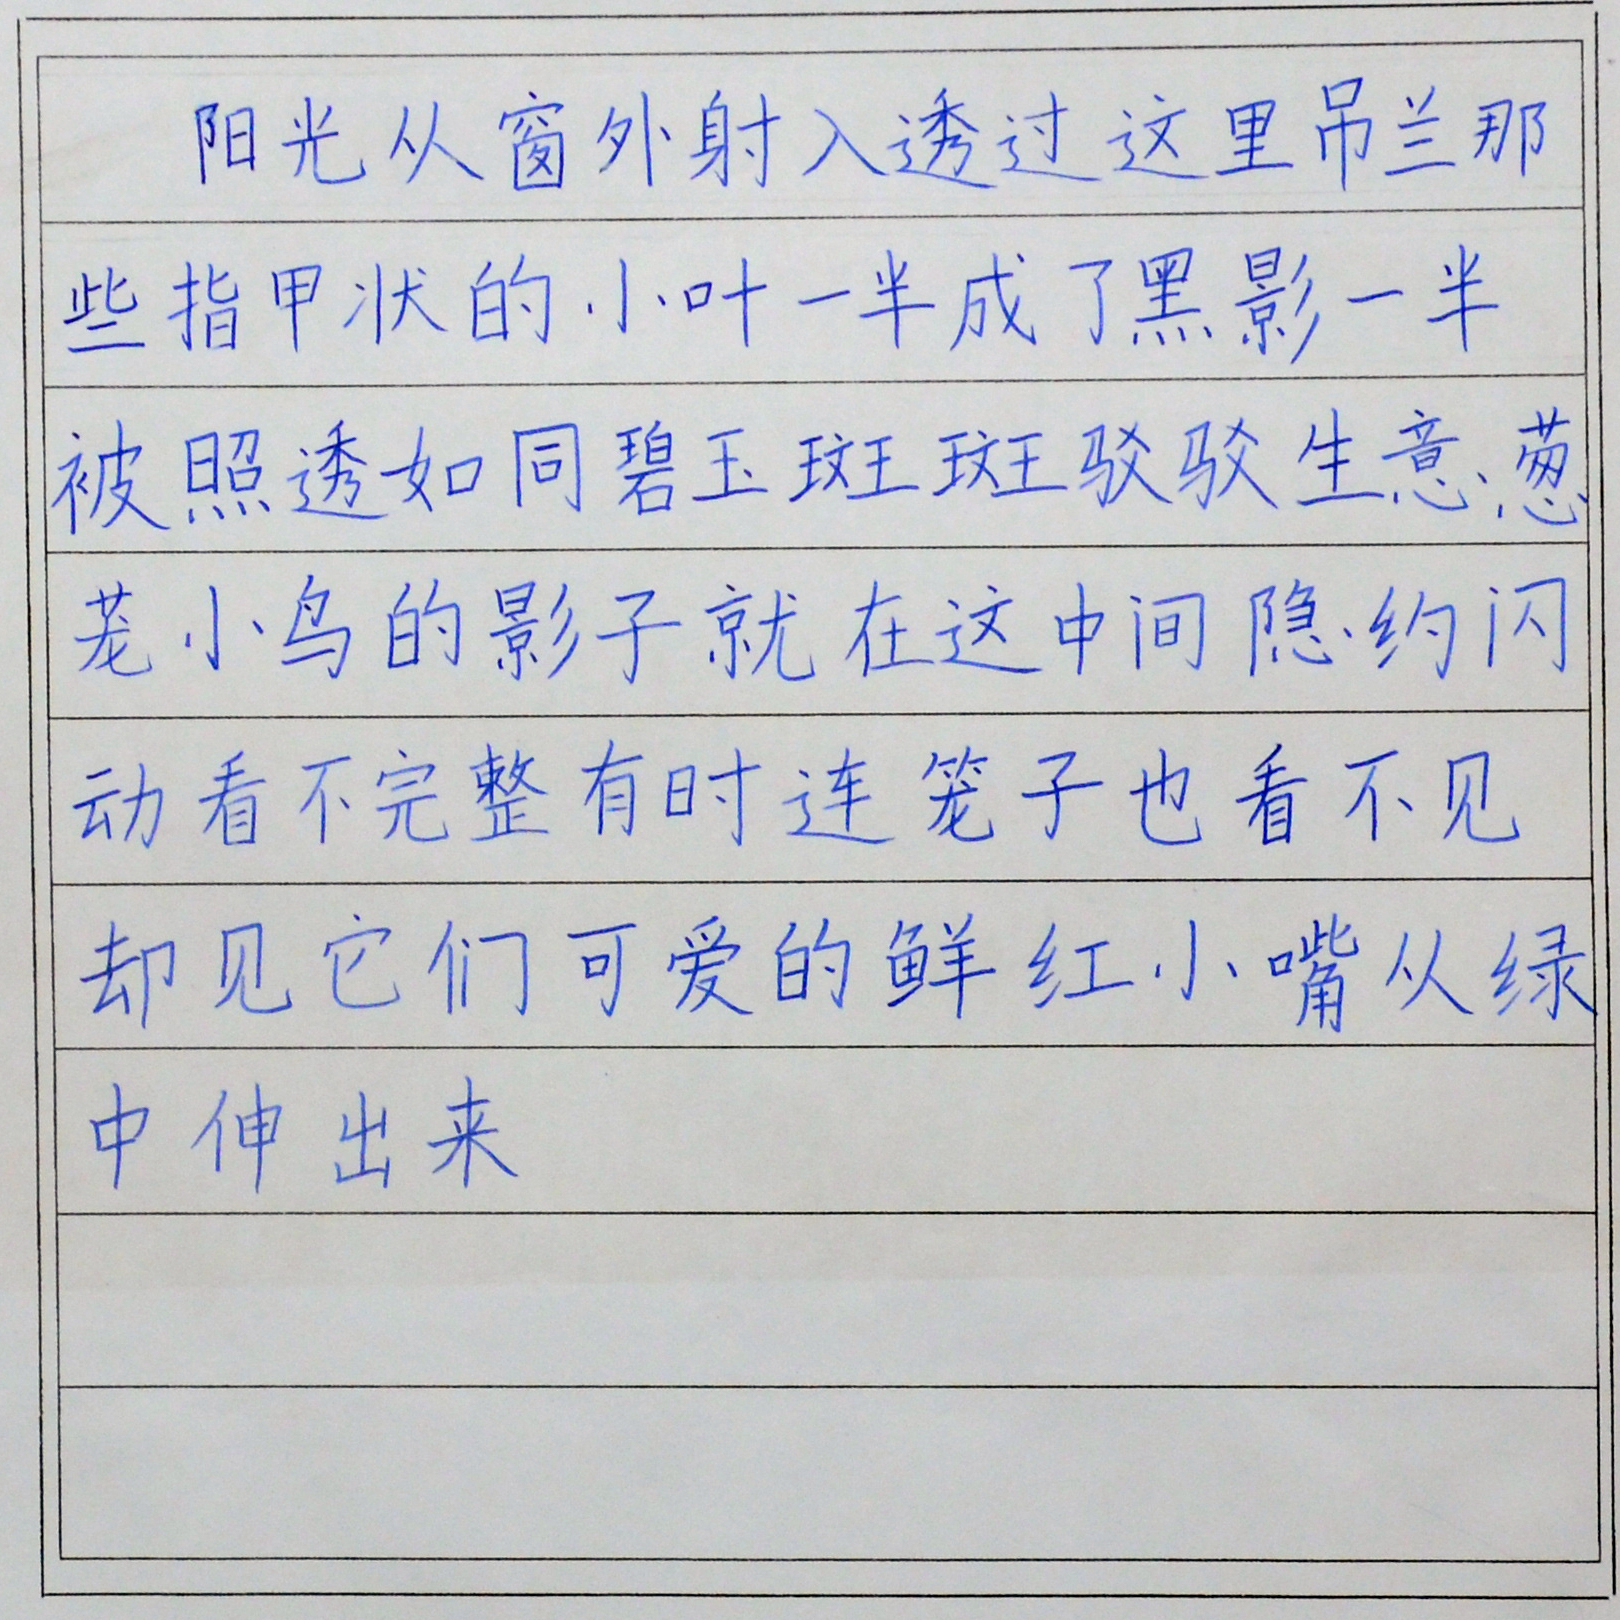 阳光从窗外射入透过这里吊兰那
些指甲状的小叶一半成了黑影一半
被照透如同碧玉斑斑驳驳生意葱
茏小鸟的影子就在这中间隐约闪
动看不完整有时连笼子也看不见
却见它们可爱的鲜红小嘴从绿
中伸出来